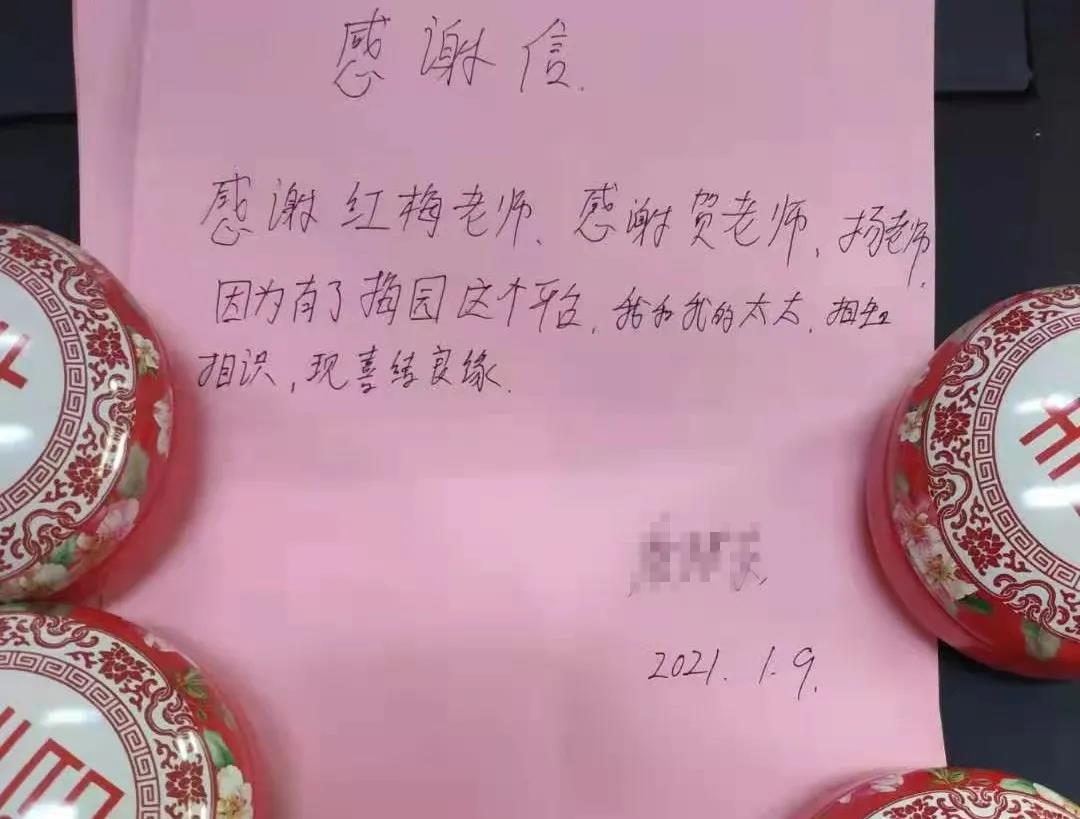 感谢信.
感谢红梅老师、感谢贺老师、杨老师.
因为有了梅园这个平台,我和我的太太,相知
相识,现喜结良缘.
2021.1.9.